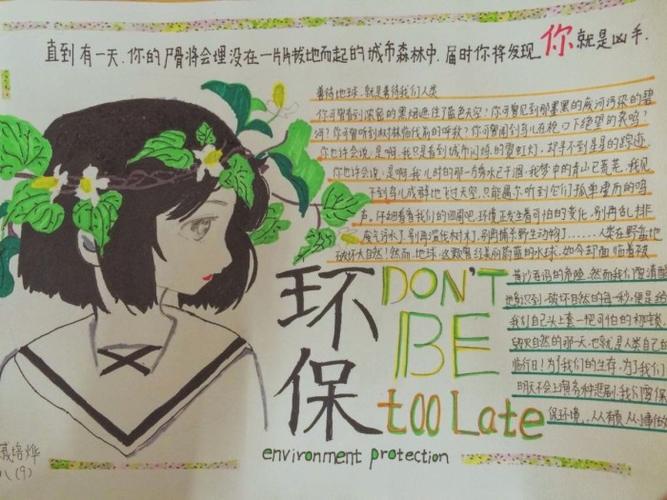 直到有一天.你的尸骨将会埋没在一片片拔地而起的城市森林中.届时你将发现你就是凶手.
善待地球.就是善待我们人类
你可曾看到浓密的黑烟遮住了蓝色天空?你可曾见到那墨黑的废河污染的碧
河?你可曾听到树林倒伐前的呼救?你可曾闻到鸟儿在枪口下绝望的哀鸣?
你也许会说.是啊.我只是看到城市闪烁的霓虹灯.却寻不到星星的踪迹.
你也许会说.是啊.我儿时的那一方绣水已干涸.我梦中的青山已荒芜.我见
不到鸟儿成群地飞过天空.只能偶尔听到它们孤单凄凉的鸣
声.仔细看看我们的周围吧.环境正发生着可怕的变化.别再乱排
废气污水了.别再滥伐树木了.别再捕杀野生动物了......人类在野蛮地
破坏大自然!然而.地球.这颗曾经美丽蔚蓝的水球.如今却面临着被
然而我们要清醒
地意识到.破坏自然的每一秒.便是给
我们自己头上套一把可怕的
毁灭自然的那一天.也就是人类自己的
临行日!为了我们的生存.为了我们
明天不会上演各种悲剧.我们要保
护环境.人人有责.人人
环保
DON'T
BE
too Late
environment protection
八(9)